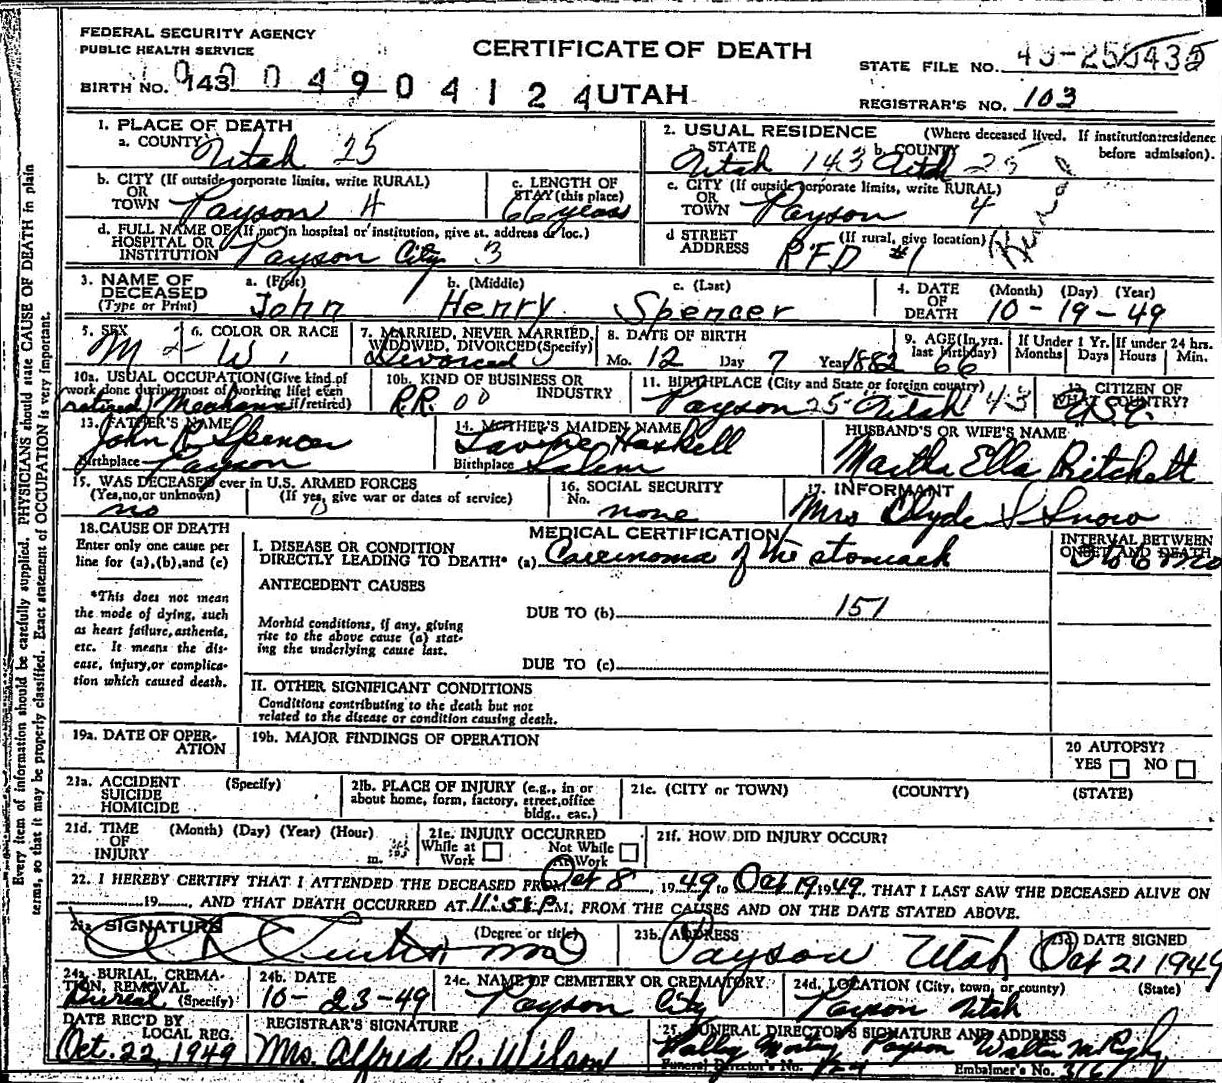 FEDERAL SECURITY AGENCY
PUBLIC HEALTH SERVICE
CERTIFICATE OF DEATH
STATE FILE NO.
BIRTH NO. 143 0 0 0 4 9 0 4 1 2 4 UTAH
REGISTRAR'S NO. 103
1. PLACE OF DEATH
a. COUNTY Utah 25
2. USUAL RESIDENCE (Where deceased lived. If institution: residence before admission).
a. STATE Utah 143 b. COUNTY Utah 25
b. CITY (If outside corporate limits, write RURAL)
OR
TOWN Payson 4
c. LENGTH OF
STAY (this place)
66 years
c. CITY (If outside corporate limits, write RURAL)
OR
TOWN Payson 4
d. FULL NAME OF (If not in hospital or institution, give st. address or loc.)
HOSPITAL OR
INSTITUTION Payson City 3
d STREET (If rural, give location)
ADDRESS RFD #1
Rural
3. NAME OF
DECEASED
(Type or Print)
a. (First) John
b. (Middle) Henry
c. (Last) Spencer
4. DATE (Month) (Day) (Year)
OF
DEATH 10-19-49
5. SEX
M
6. COLOR OR RACE
W.
7. MARRIED, NEVER MARRIED,
WIDOWED, DIVORCED (Specify)
Divorced
8. DATE OF BIRTH
Mo. 12 Day 7 Year 1882
9. AGE (In yrs.
last birthday)
66
If Under 1 Yr.
Months Days
If under 24 hrs.
Hours Min.
10a. USUAL OCCUPATION (Give kind of
work done during most of working life, even
if retired)
retired
10b. KIND OF BUSINESS OR
INDUSTRY
R.R. 00
11. BIRTHPLACE (City and State or foreign country)
Payson 25 Utah 143
12. CITIZEN OF
WHAT COUNTRY?
13. FATHER'S NAME
John Spencer
Birthplace Payson
14. MOTHER'S MAIDEN NAME
Haskell
Birthplace Salem
HUSBAND'S OR WIFE'S NAME
Martha Ella Pritchett
15. WAS DECEASED ever in U.S. ARMED FORCES
(Yes, no, or unknown) (If yes, give war or dates of service)
no
16. SOCIAL SECURITY
No.
none
17. INFORMANT
Mrs Clyde S Snow
18. CAUSE OF DEATH
Enter only one cause per
line for (a), (b), and (c)
*This does not mean
the mode of dying, such
as heart failure, asthenia,
etc. It means the dis-
ease, injury, or complica-
tion which caused death.
MEDICAL CERTIFICATION
I. DISEASE OR CONDITION
DIRECTLY LEADING TO DEATH* (a) Carcinoma of the stomach
INTERVAL BETWEEN
ONSET AND DEATH
ANTECEDENT CAUSES
DUE TO (b) 151
Morbid conditions, if any, giving
rise to the above cause (a) stat-
ing the underlying cause last.
DUE TO (c)
II. OTHER SIGNIFICANT CONDITIONS
Conditions contributing to the death but not
related to the disease or condition causing death.
19a. DATE OF OPER-
ATION
19b. MAJOR FINDINGS OF OPERATION
20 AUTOPSY?
YES NO
21a. ACCIDENT (Specify)
SUICIDE
HOMICIDE
21b. PLACE OF INJURY (e.g., in or
about home, form, factory, street, office
bldg., eac.)
21c. (CITY or TOWN) (COUNTY) (STATE)
21d. TIME (Month) (Day) (Year) (Hour)
OF
INJURY m.
21e. INJURY OCCURRED
While at Work Not While At Work
21f. HOW DID INJURY OCCUR?
22. I HEREBY CERTIFY THAT I ATTENDED THE DECEASED FROM Oct 8, 1949 to Oct 19 1949, THAT I LAST SAW THE DECEASED ALIVE ON
19, AND THAT DEATH OCCURRED AT 11:58 P M. FROM THE CAUSES AND ON THE DATE STATED ABOVE.
23a SIGNATURE (Degree or title)
MD
23b. ADDRESS
Payson Utah
23c DATE SIGNED
Oct 21 1949
24a. BURIAL, CREMA-
TION, REMOVAL
Burial (Specify)
24b. DATE
10-23-49
24c. NAME OF CEMETERY OR CREMATORY
Payson City
24d. LOCATION (City, town, or county) (State)
Payson Utah
DATE REC'D BY
LOCAL REG.
Oct. 22, 1949
REGISTRAR'S SIGNATURE
Mrs. Alfred R. Wilson
25. FUNERAL DIRECTOR'S SIGNATURE AND ADDRESS
Payson
Funeral Director's No. Embalmer's No.
Every item of information should be carefully supplied. PHYSICIANS should state CAUSE OF DEATH in plain
terms, so that it may be properly classified. Exact statement of OCCUPATION is very important.